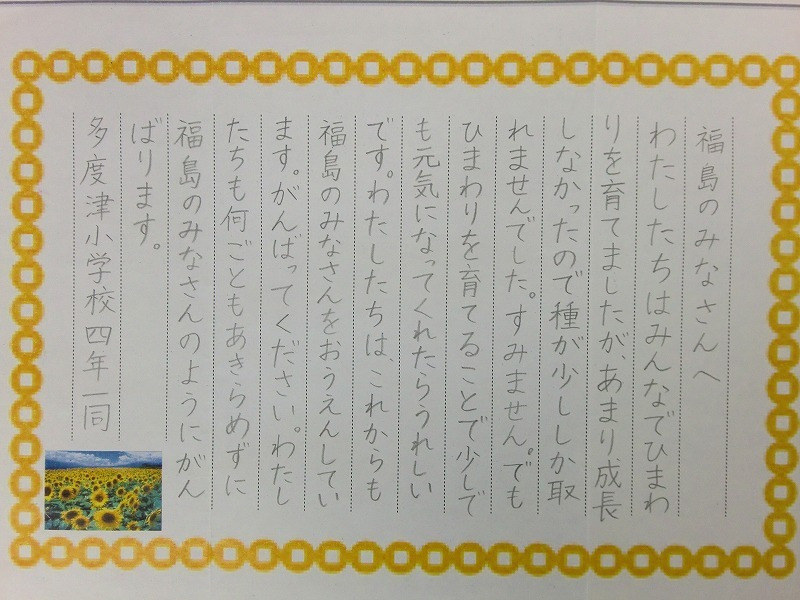 福島のみなさんへ
わたしたちはみんなでひまわ
りを育てましたが、あまり、成長
しなかったので種が少ししか取
れませんでした。すみません。でも
ひまわりを育てることで少しで
も元気になってくれたらうれしい
です。わたしたちは、これからも
福島のみなさんをおうえんしてい
ます。がんばってください。わたし
たちも何ごともあきらめずに
福島のみなさんのようにがん
ばります。
多度津小学校四年一同